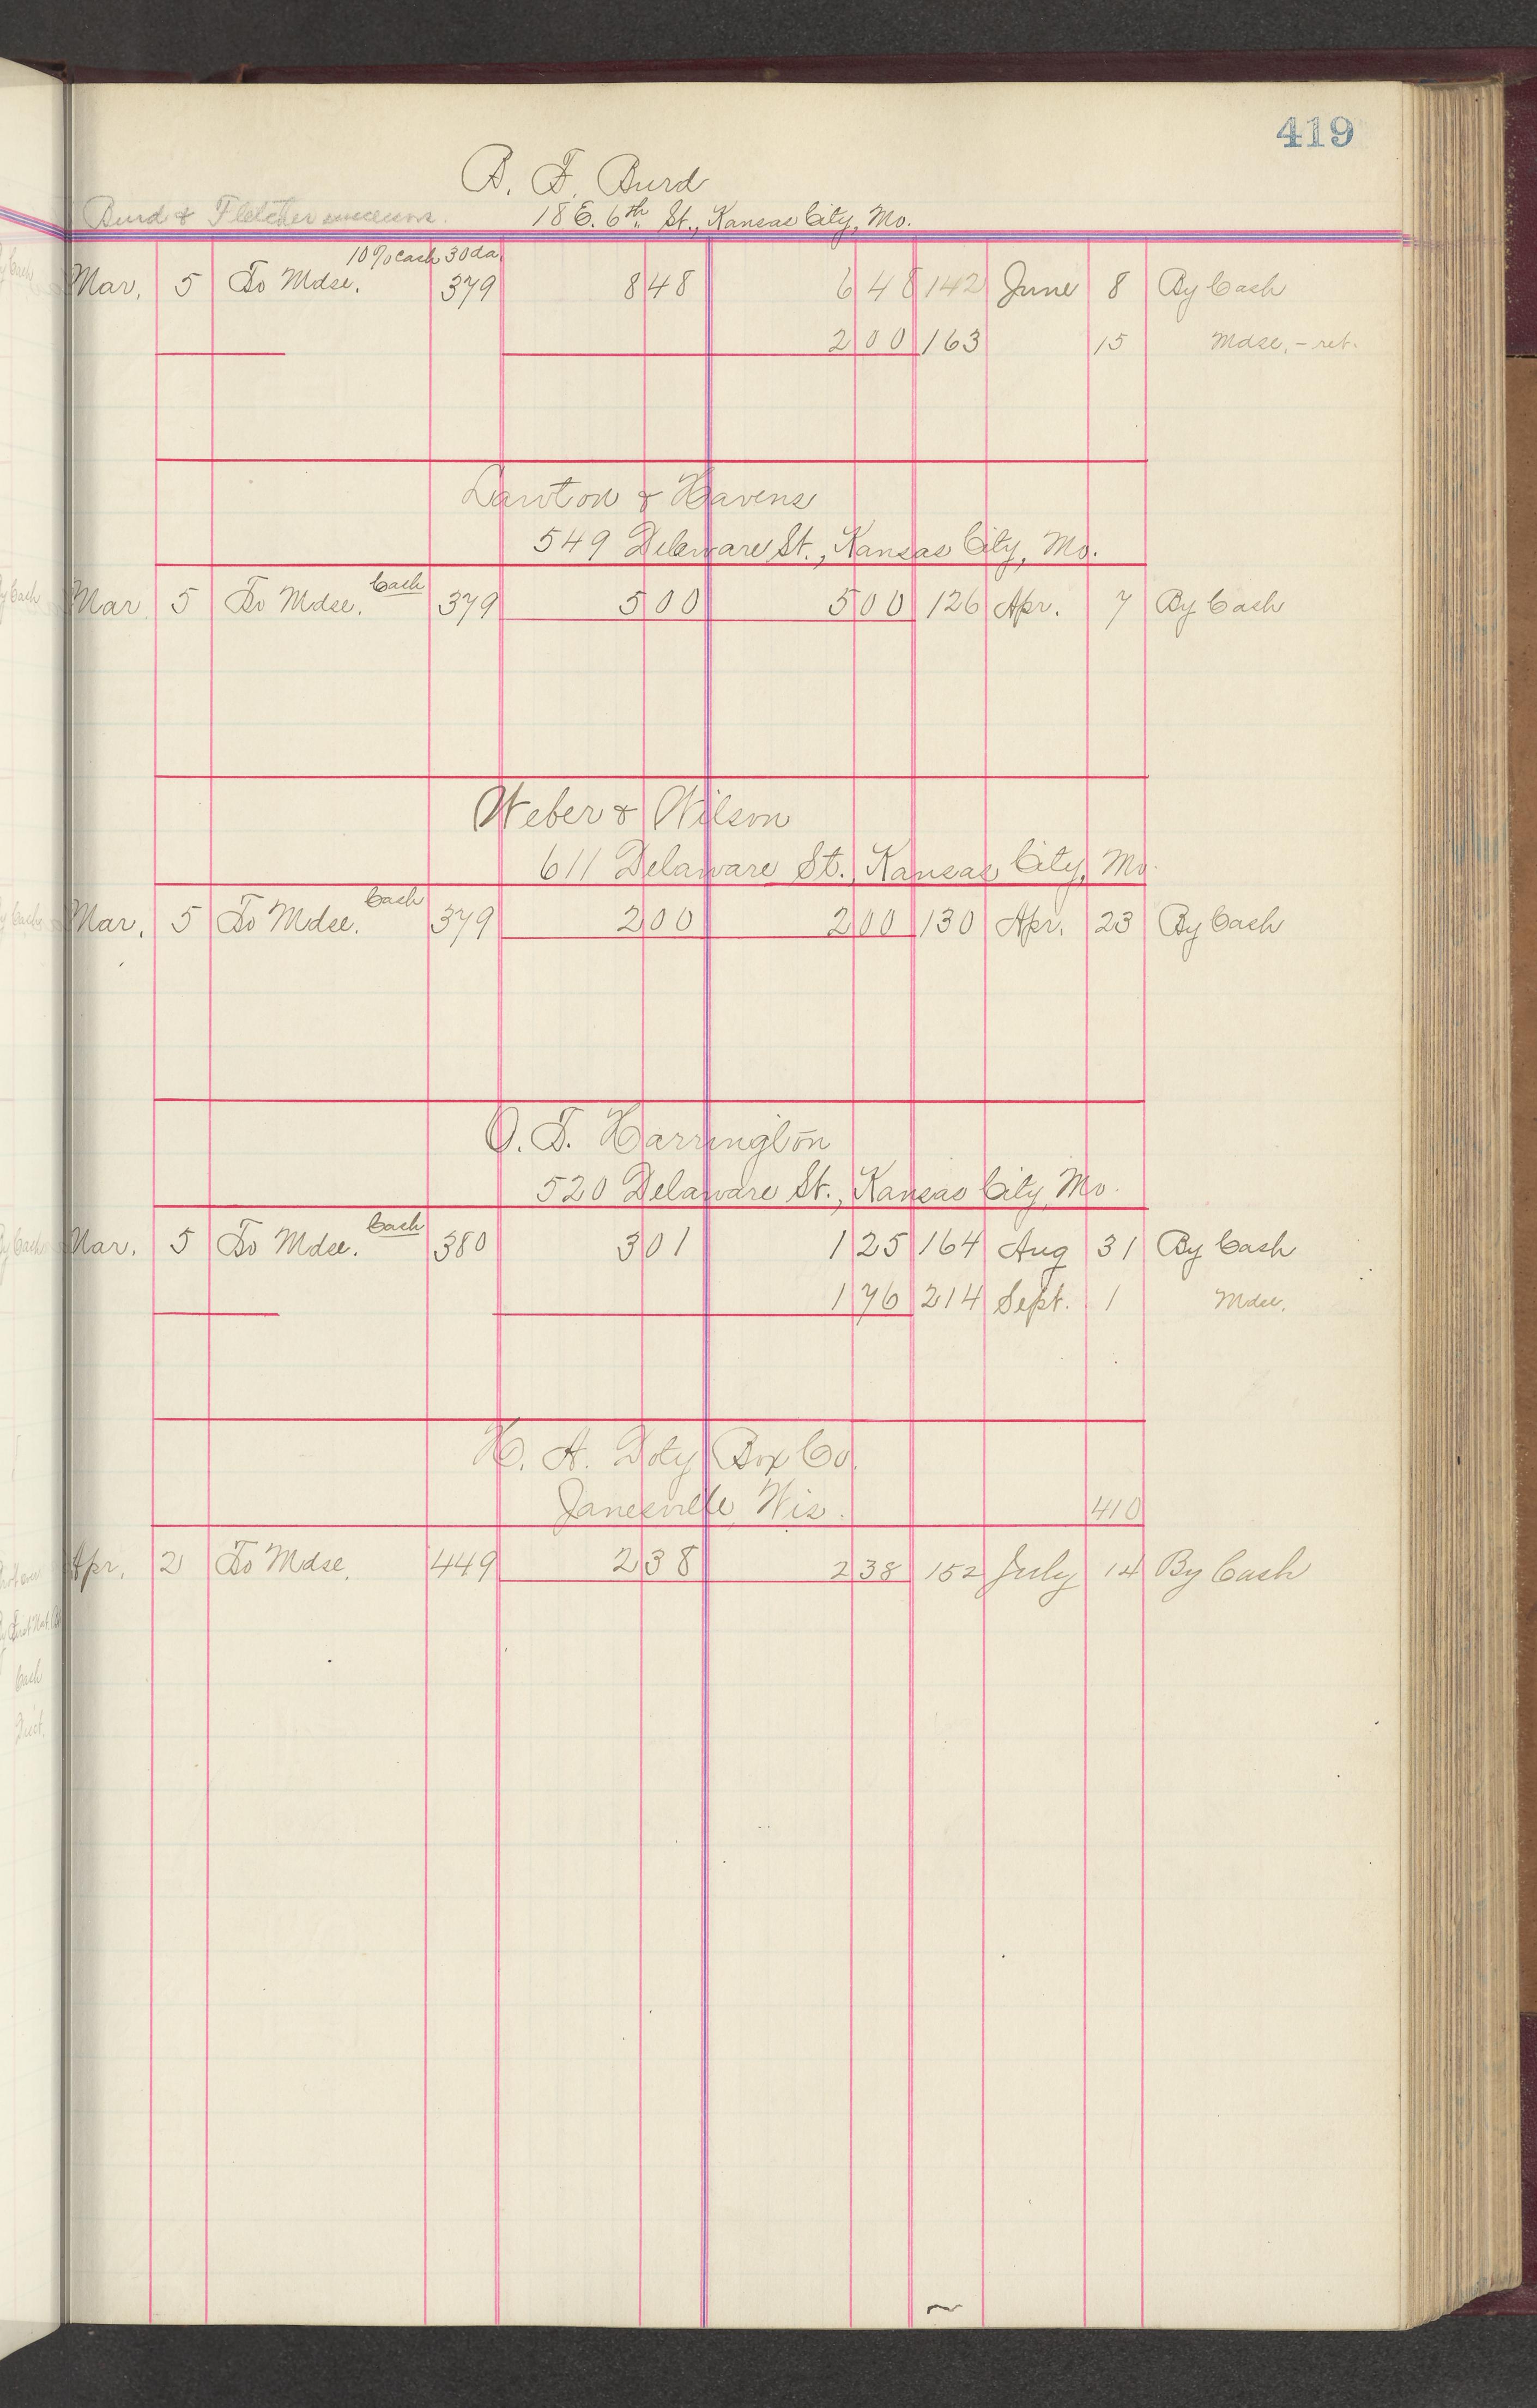 419
B. F. Burd
Burd & Fletcher 18 E. 6th St., Kansas City, Mo.
10% cash 30 da.
Mar. 5 To Mdse. 379 8 48 6 48 142 June 8 By Cash
2 00 163 15 Mdse. - ret.
Lawton & Havens
549 Delaware St., Kansas City, Mo.
Cash
Mar 5 To Mdse. 379 5 00 5 00 126 Apr. 7 By Cash
Weber & Wilson
611 Delaware St., Kansas City, Mo.
Cash
Mar. 5 To Mdse. 379 2 00 2 00 130 Apr. 23 By Cash
O. F. Harrington
520 Delaware St., Kansas City, Mo.
Cash
Mar. 5 To Mdse. 380 3 01 1 25 164 Aug 31 By Cash
1 76 214 Sept. 1 Mdse.
H. A. Doty Box Co.
Janesville, Wis. 410
Apr. 2 To Mdse. 449 2 38 2 38 152 July 14 By Cash